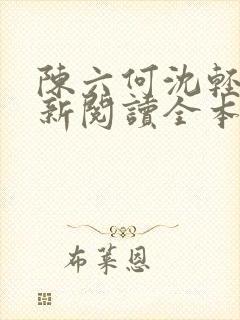 陳六何沈輕
新閱讀全本
布萊恩